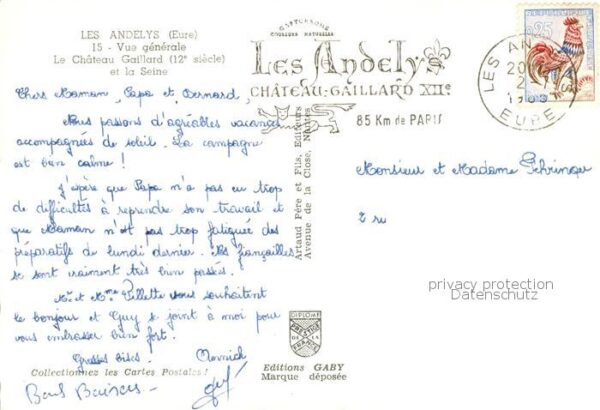 LES ANDELYS (Eure)
15 - Vue générale
Le Château Gaillard (12e siècle)
et la Seine
Chers Maman, Papa et Bernard,
Nous passons d'agréables vacances
accompagnées de soleil. La campagne
est bien calme !
J'espère que Papa n'a pas eu trop
de difficultés à reprendre son travail et
que Maman n'est pas trop fatiguée des
préparatifs de lundi dernier. Nos fiançailles
se sont vraiment très bien passées.
Mr et Mme Villette vous souhaitent
le bonjour et Guy se joint à moi pour
vous embrasser bien fort.
Grosses bises. Annick
Collectionnez les Cartes Postales !
Bons Baisers - Guy
COULEURS NATURELLES
Les Andelys
CHÂTEAU-GAILLARD XIIe
85 Km de PARIS
Artaud Père et Fils, Editeurs
Avenue de la Close, Nantes
LES AN
20
EURE
0,25
Monsieur et Madame
2 ru
privacy protection
Datenschutz
DIPLOME
PRESTIGE
DE LA
FRANCE
Editions GABY
Marque déposée